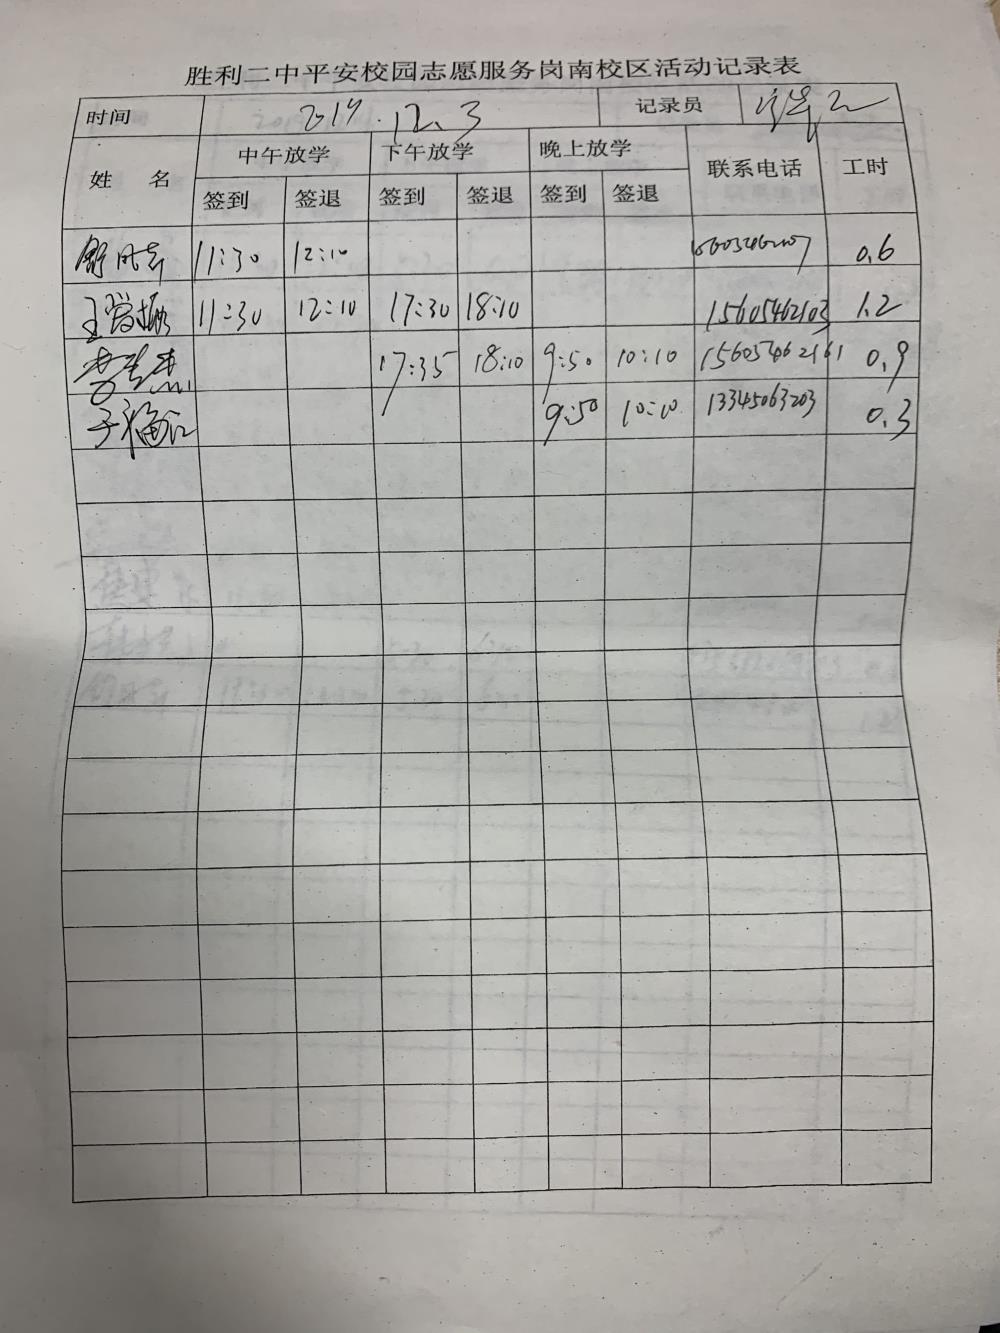 胜利二中平安校园志愿服务岗南校区活动记录表
时间 2019.12.3 记录员
姓 名 中午放学 下午放学 晚上放学 联系电话 工时
签到 签退 签到 签退 签到 签退
11:30 12:10 0.6
11:30 12:10 17:30 18:10 15605462103 1.2
17:35 18:10 9:50 10:10 15605462161 0.9
于福江 9:50 10:10 13345063203 0.3